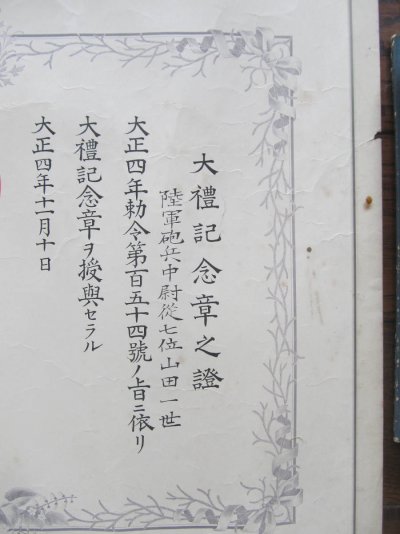 大禮記念章之證
陸軍砲兵中尉從七位山田一世
大正四年勅令第百五十四號ノ旨ニ依リ
大禮記念章ヲ授與セラル
大正四年十一月十日